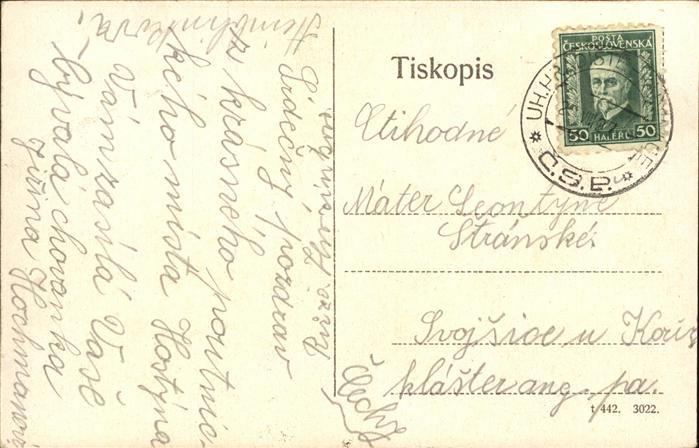 Tiskopis
POSTA
ČESKOSLOVENSKÁ
50 HALÉŘŮ 50
UH. H
Č.S.P.
Ctihodné
Máter Leontýne
Stránské
Svojšice u Kouř
klášter ang. pa.
Čechy
t 442. 3022.
Srdečný pozdrav
z krásného poutnic-
kého místa Hostýna
Vám zasílá Vaše
bývalá chovanka
Jiřina Hochmanová